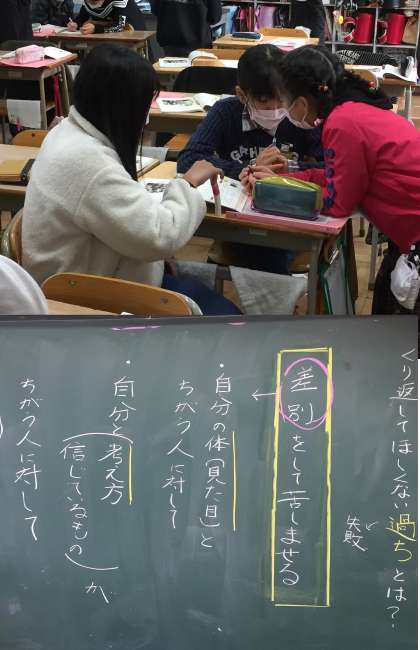 くり返してほしくない過ちとは?
失敗
差別をして苦しませる
・自分の体(見た目)と
ちがう人に対して
・自分と考え方
(信じているもの)が
ちがう人に対して